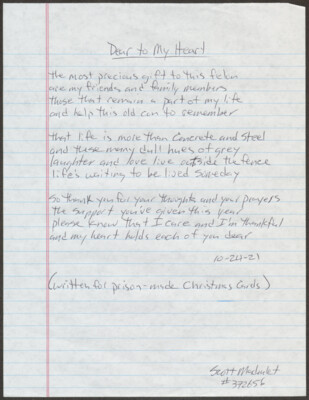 Dear to My Heart
the most precious gift to this felon
are my friends and family members
those that remain a part of my life
and help this old con to remember
that life is more than concrete and steel
and these many dull hues of grey
laughter and love live outside the fence
life's waiting to be lived someday
so thank you for your thoughts and your prayers
the support you've given this year
please know that I care and I'm thankful
and my heart holds each of you dear
10-24-21
(written for prison-made Christmas Cards)
Scott